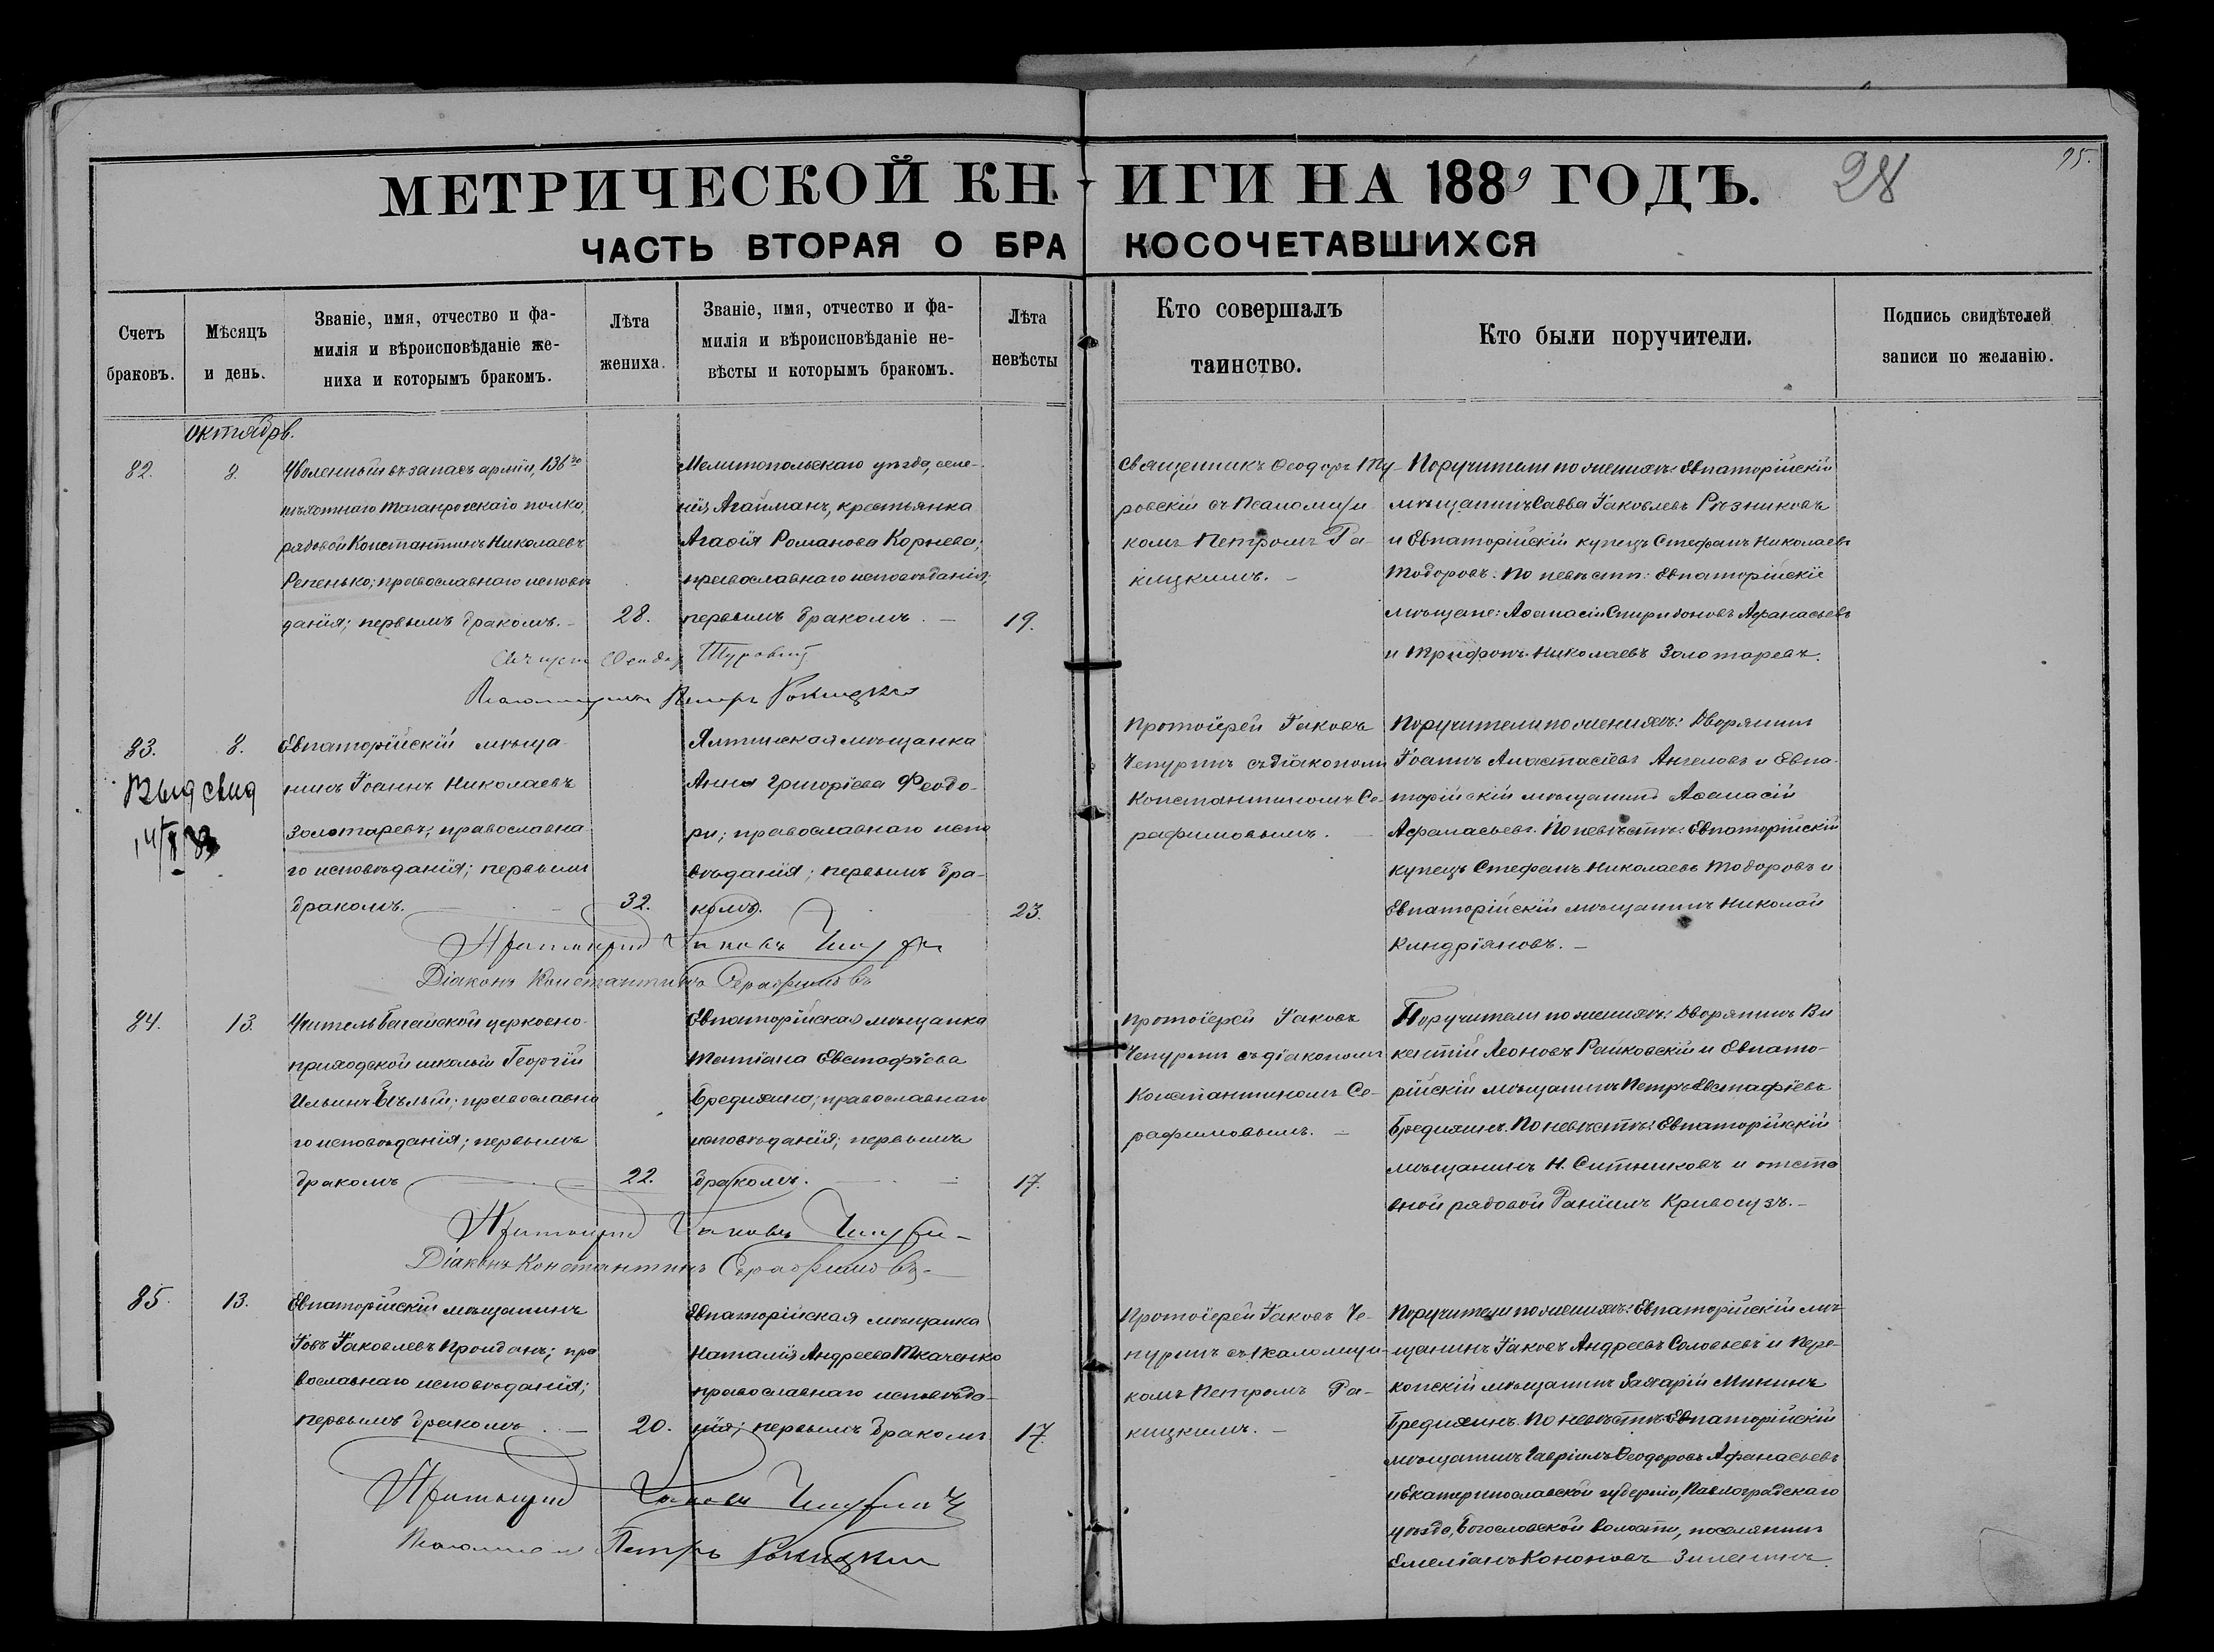 МЕТРИЧЕСКОЙ КНИГИ НА 1889 ГОДЪ.
28
95.
ЧАСТЬ ВТОРАЯ О БРАКОСОЧЕТАВШИХСЯ
Счетъ
браковъ.
Мѣсяцъ
и день.
Званіе, имя, отчество и фа-
милія и вѣроисповѣданіе же-
ниха и которымъ бракомъ.
Лѣта
жениха.
Званіе, имя, отчество и фа-
милія и вѣроисповѣданіе не-
вѣсты и которымъ бракомъ.
Лѣта
невѣсты
Кто совершалъ
таинство.
Кто были поручители.
Подпись свидѣтелей
записи по желанію.
Октябрь.
82.
8.
Уволенный въ запасъ арміи, 136го
пѣхотнаго Таганрогскаго полка,
рядовой Константинъ Николаевъ
Репенько; православнаго исповѣ
данія; первымъ бракомъ. –
28.
Мелитопольскаго уѣзда, селе-
нія Агайманъ, крестьянка
Агаѳія Романова Корнева;
православнаго исповѣданія;
первымъ бракомъ. –
19.
Священникъ Ѳеодоръ Ту-
ровскій съ Псаломщи
комъ Петромъ Ра-
кицкимъ. –
Поручители по женихѣ: Евпаторійскій
мѣщанинъ Савва Іаковлевъ Рѣзниковъ
и Евпаторійскій купецъ Стефанъ Николаевъ
Тодоровъ: По невѣстѣ: Евпаторійскіе
мѣщане: Аѳанасій Спиридоновъ Афанасьевъ
и Трифонъ Николаевъ Золотаревъ.
Ѳеодоръ Туровскій
Петръ Ракицкій
83.
8.
Выд свид
Евпаторійскій мѣща
нинъ Іоаннъ Николаевъ
Золотаревъ; православна
го исповѣданія; первымъ
бракомъ.
32.
Ялтинская мѣщанка
Анна Григоріева Феодо-
ри; православнаго испо
вѣданія; первымъ бра-
комъ.
23.
Протоіерей Іаковъ
Чепуринъ съ діакономъ
Константиномъ Се-
рафимовымъ. –
Поручители по женихѣ: Дворянинъ
Іоаннъ Анастасіевъ Ангеловъ и Евпа-
торійскій мѣщанинъ Аѳанасій
Афанасьевъ. По невѣстѣ: Евпаторійскій
купецъ Стефанъ Николаевъ Тодоровъ и
Евпаторійскій мѣщанинъ Николай
Киндріяновъ. –
Протоіерей Іаковъ Чепуринъ
Діаконъ Константинъ Серафимовъ
84.
13.
Учитель Багайской церковно-
приходской школы Георгій
Ильинъ Бѣлый; православна
го исповѣданія; первымъ
бракомъ
22.
Евпаторійская мѣщанка
Татіана Евстафіева
Бредихина; православнаго
исповѣданія; первымъ
бракомъ.
17.
Протоіерей Іаковъ
Чепуринъ съ діакономъ
Константиномъ Се-
рафимовымъ. –
Поручители по женихѣ: Дворянинъ Ви
кентій Леоновъ Райковскій и Евпато-
рійскій мѣщанинъ Петръ Евстафіевъ
Бредихинъ. По невѣстѣ: Евпаторійскій
мѣщанинъ Н. Ситниковъ и отста
вной рядовой Даніилъ Кривогузъ. –
Протоіерей Іаковъ Чепуринъ
Діаконъ Константинъ Серафимовъ –
85.
13.
Евпаторійскій мѣщанинъ
Іовъ Іаковлевъ Проиданъ; пра
вославнаго исповѣданія;
первымъ бракомъ. –
20.
Евпаторійская мѣщанка
Наталія Андреева Ткаченко
православнаго исповѣда-
нія; первымъ бракомъ.
17.
Протоіерей Іаковъ Че-
пуринъ съ Псаломщи-
комъ Петромъ Ра-
кицкимъ. –
Поручители по женихѣ: Евпаторійскій мѣ
щанинъ Іаковъ Андреевъ Соловьевъ и Пере-
копскій мѣщанинъ Захарій Мининъ
Бредихинъ. По невѣстѣ: Евпаторійскій
мѣщанинъ Гавріилъ Ѳеодоровъ Афанасьевъ
и Екатеринославской губерніи, Павлоградскаго
уѣзда, Богословской волости, поселянинъ
Емеліанъ Кононовъ
Протоіерей Іаковъ Чепуринъ
Псаломщикъ Петръ Ракицкій